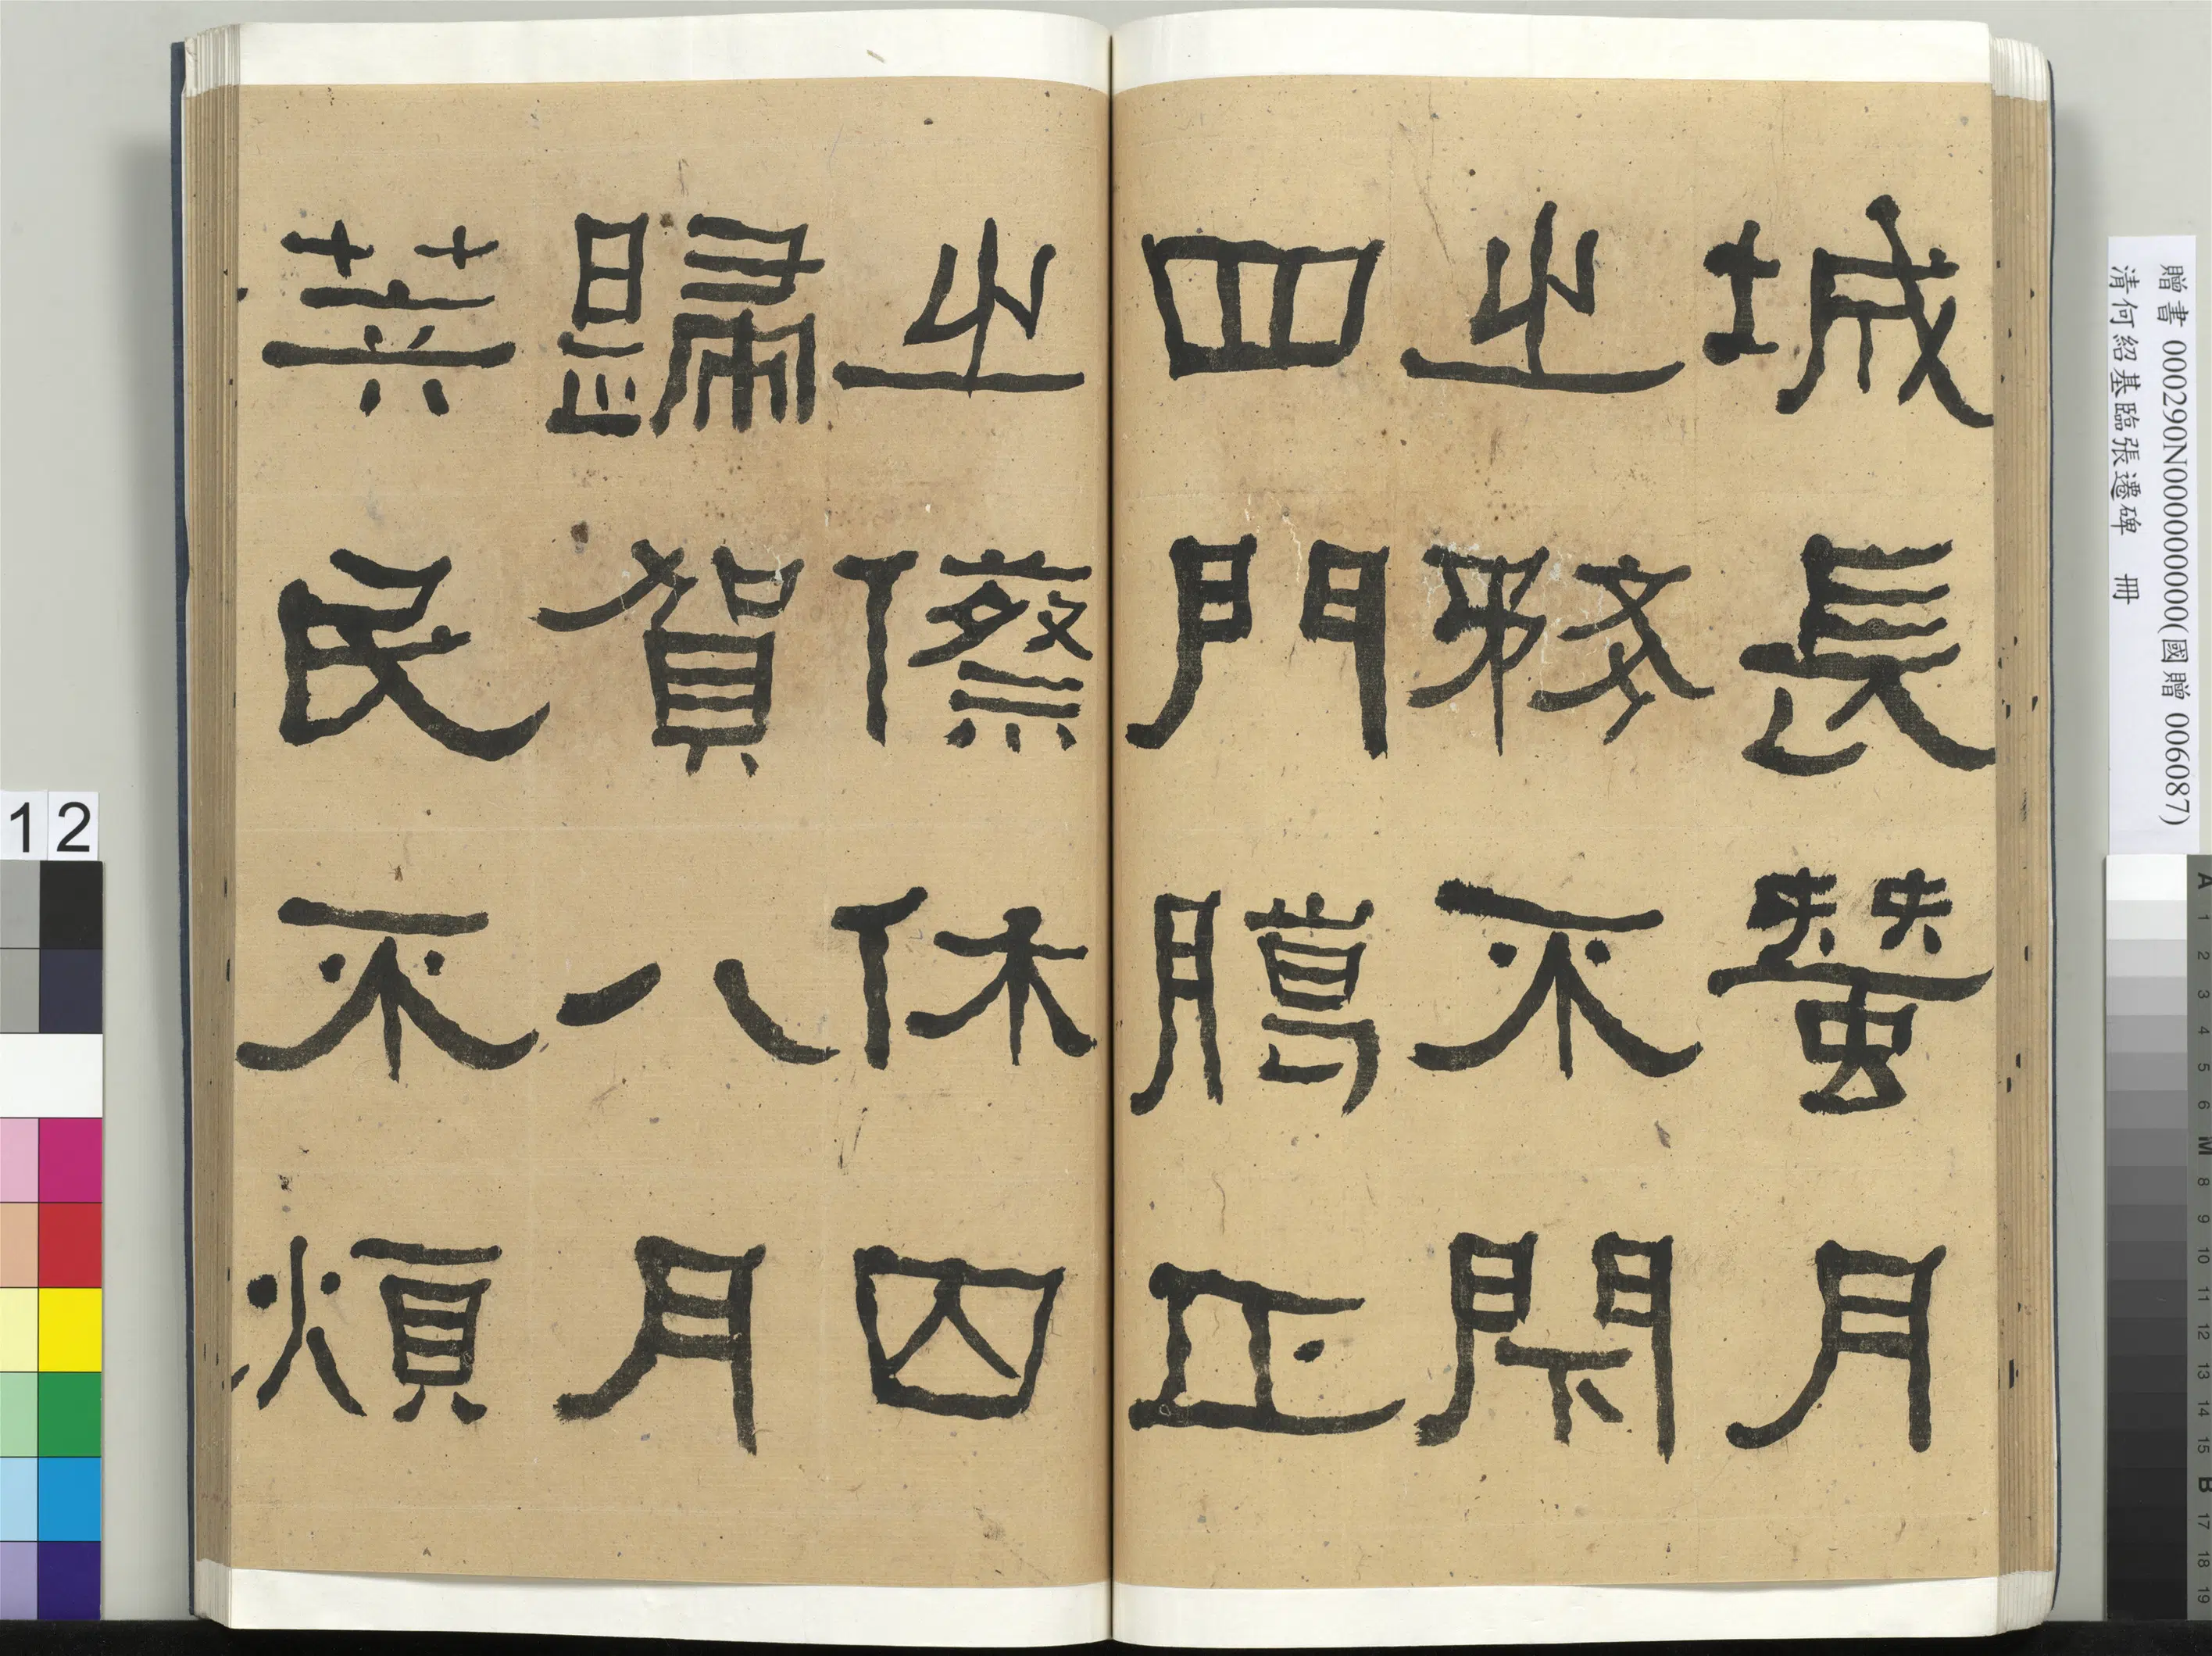 城長蠶月
之務不閉
四門臘正
之傺休囚
歸賀八月
筭民不煩
贈書 000290N000000000(國贈 006087)
清何紹基臨張遷碑 冊
12
A 1 2 3 4 5 6 M 8 9 10 11 12 13 14 15 B 17 18 19